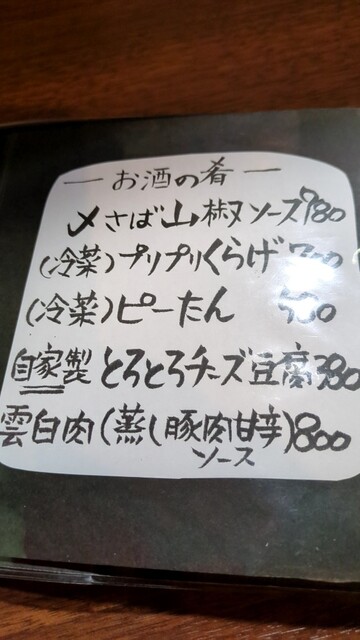 ー お酒の肴 ー
〆さば山椒ソース 780
(冷菜)プリプリくらげ 700
(冷菜)ピーたん
自家製 とろとろチーズ豆腐 380
雲白肉(蒸し豚肉甘辛ソース)800